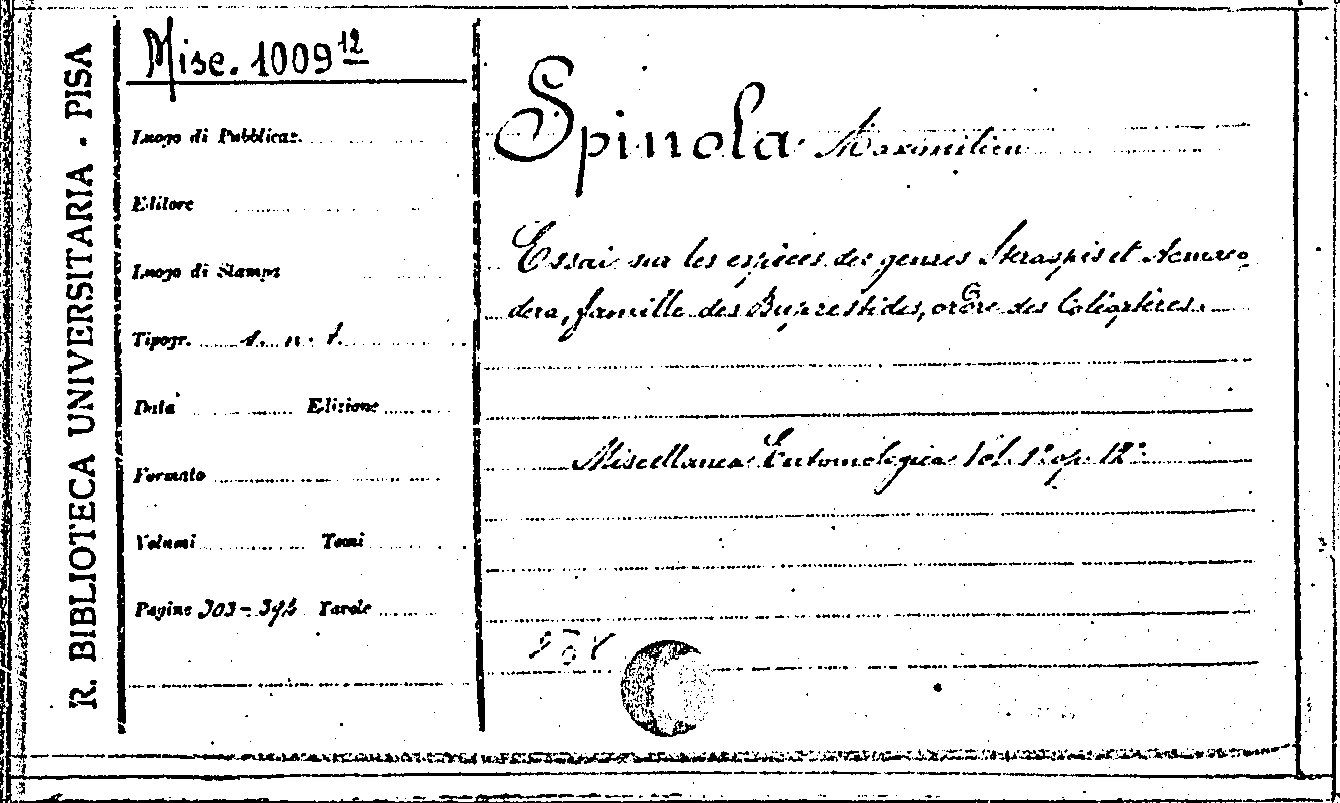 R. BIBLIOTECA UNIVERSITARIA - PISA
Misc. 1009 12
Luogo di Pubblicaz.
Editore
Luogo di Stampa
Tipogr. s. n. t.
Data Edizione
Formato
Volumi Tomi
Pagine 303- Tavole
Spinola Maximilien
Essai sur les espèces des genres Steraspis et Acmaeo-
dera, famille des Buprestides, ordre des Coléoptères.
Miscellanea Entomologica Vol. 1° op. 12°